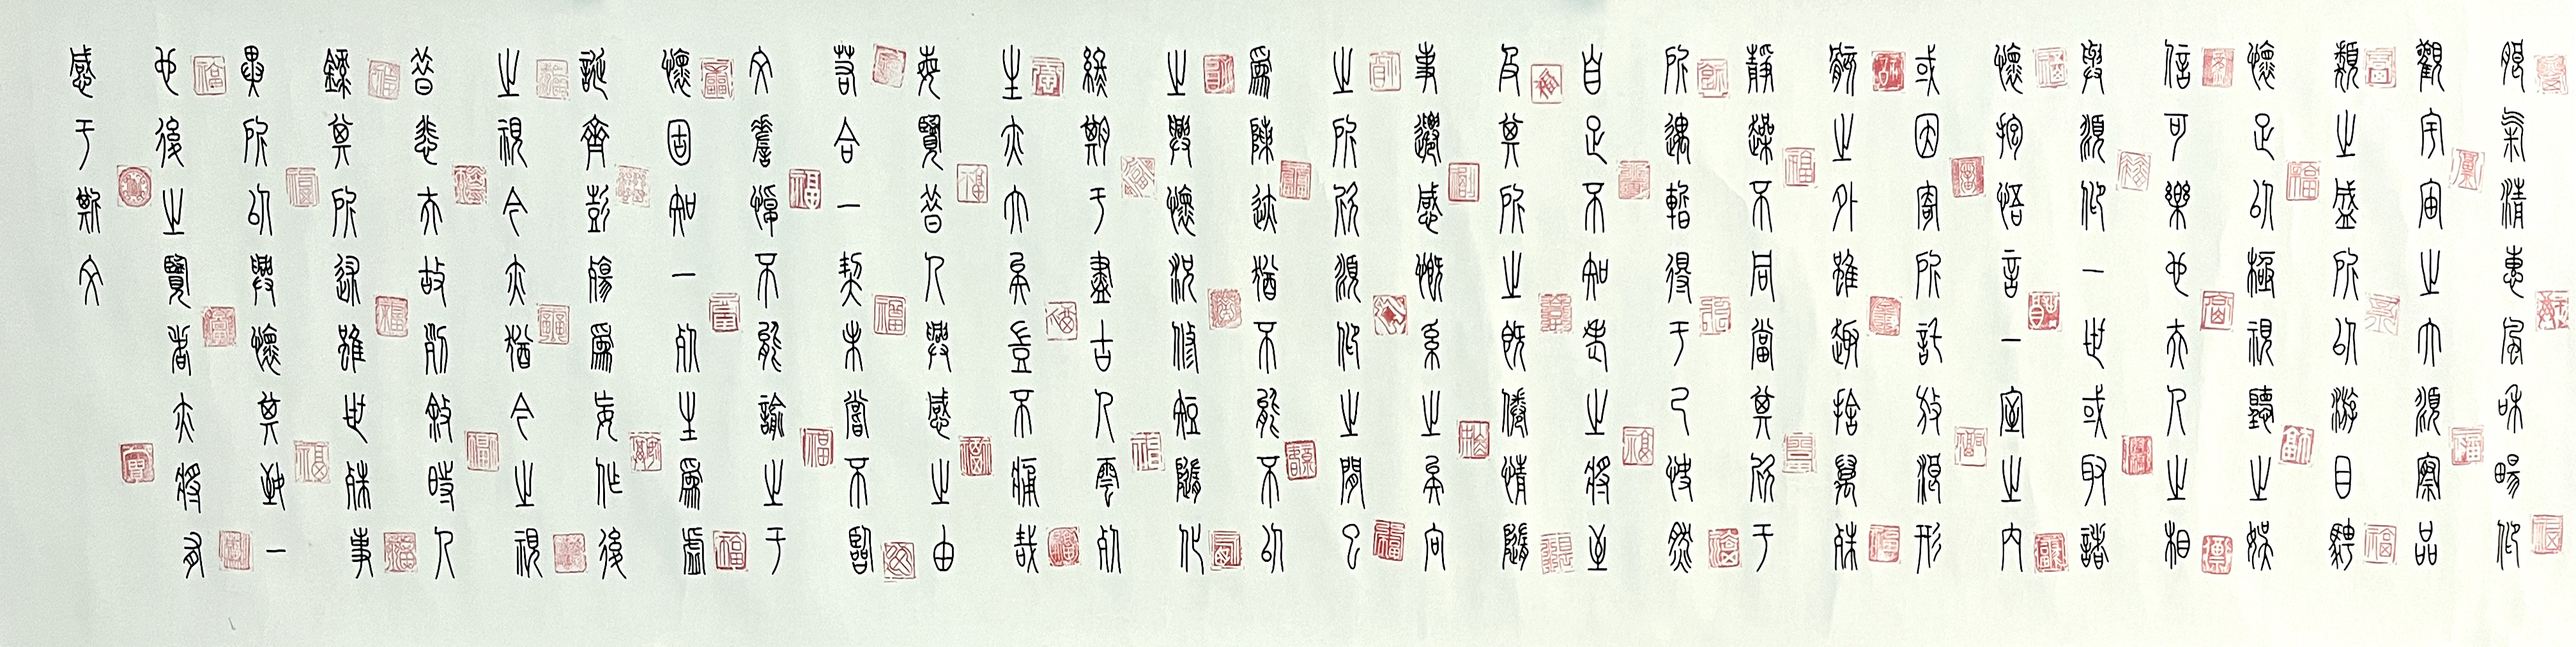 朗氣清惠風和暢仰
觀宇宙之大俯察品
類之盛所以游目騁
懷足以極視聽之娛
信可樂也夫人之相
與俯仰一世或取諸
懷抱悟言一室之內
或因寄所託放浪形
骸之外雖趣捨萬殊
靜躁不同當其欣于
所遇暫得于己快然
自足不知老之將至
及其所之既倦情隨
事遷感慨系之矣向
之所欣俯仰之間已
為陳迹猶不能不以
之興懷況修短隨化
終期于盡古人雲死
生亦大矣豈不痛哉
每覽昔人興感之由
若合一契未嘗不臨
文嗟悼不能諭之于
懷固知一死生為虛
誕齊彭殤為妄作後
之視今亦猶今之視
昔悲夫故列敘時人
錄其所述雖世殊事
異所以興懷其致一
也後之覽者亦將有
感于斯文